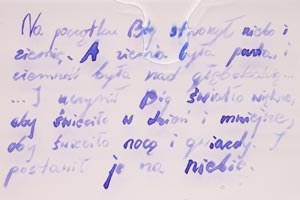 Na początku Bóg stworzył niebo i
ziemię. A ziemia była pusta, i
ciemność była nad głębokością...
... I uczynił Bóg światło większe,
aby świeciło w dzień i mniejsze,
aby świeciło nocą i gwiazdy. I
postawił je na niebie.